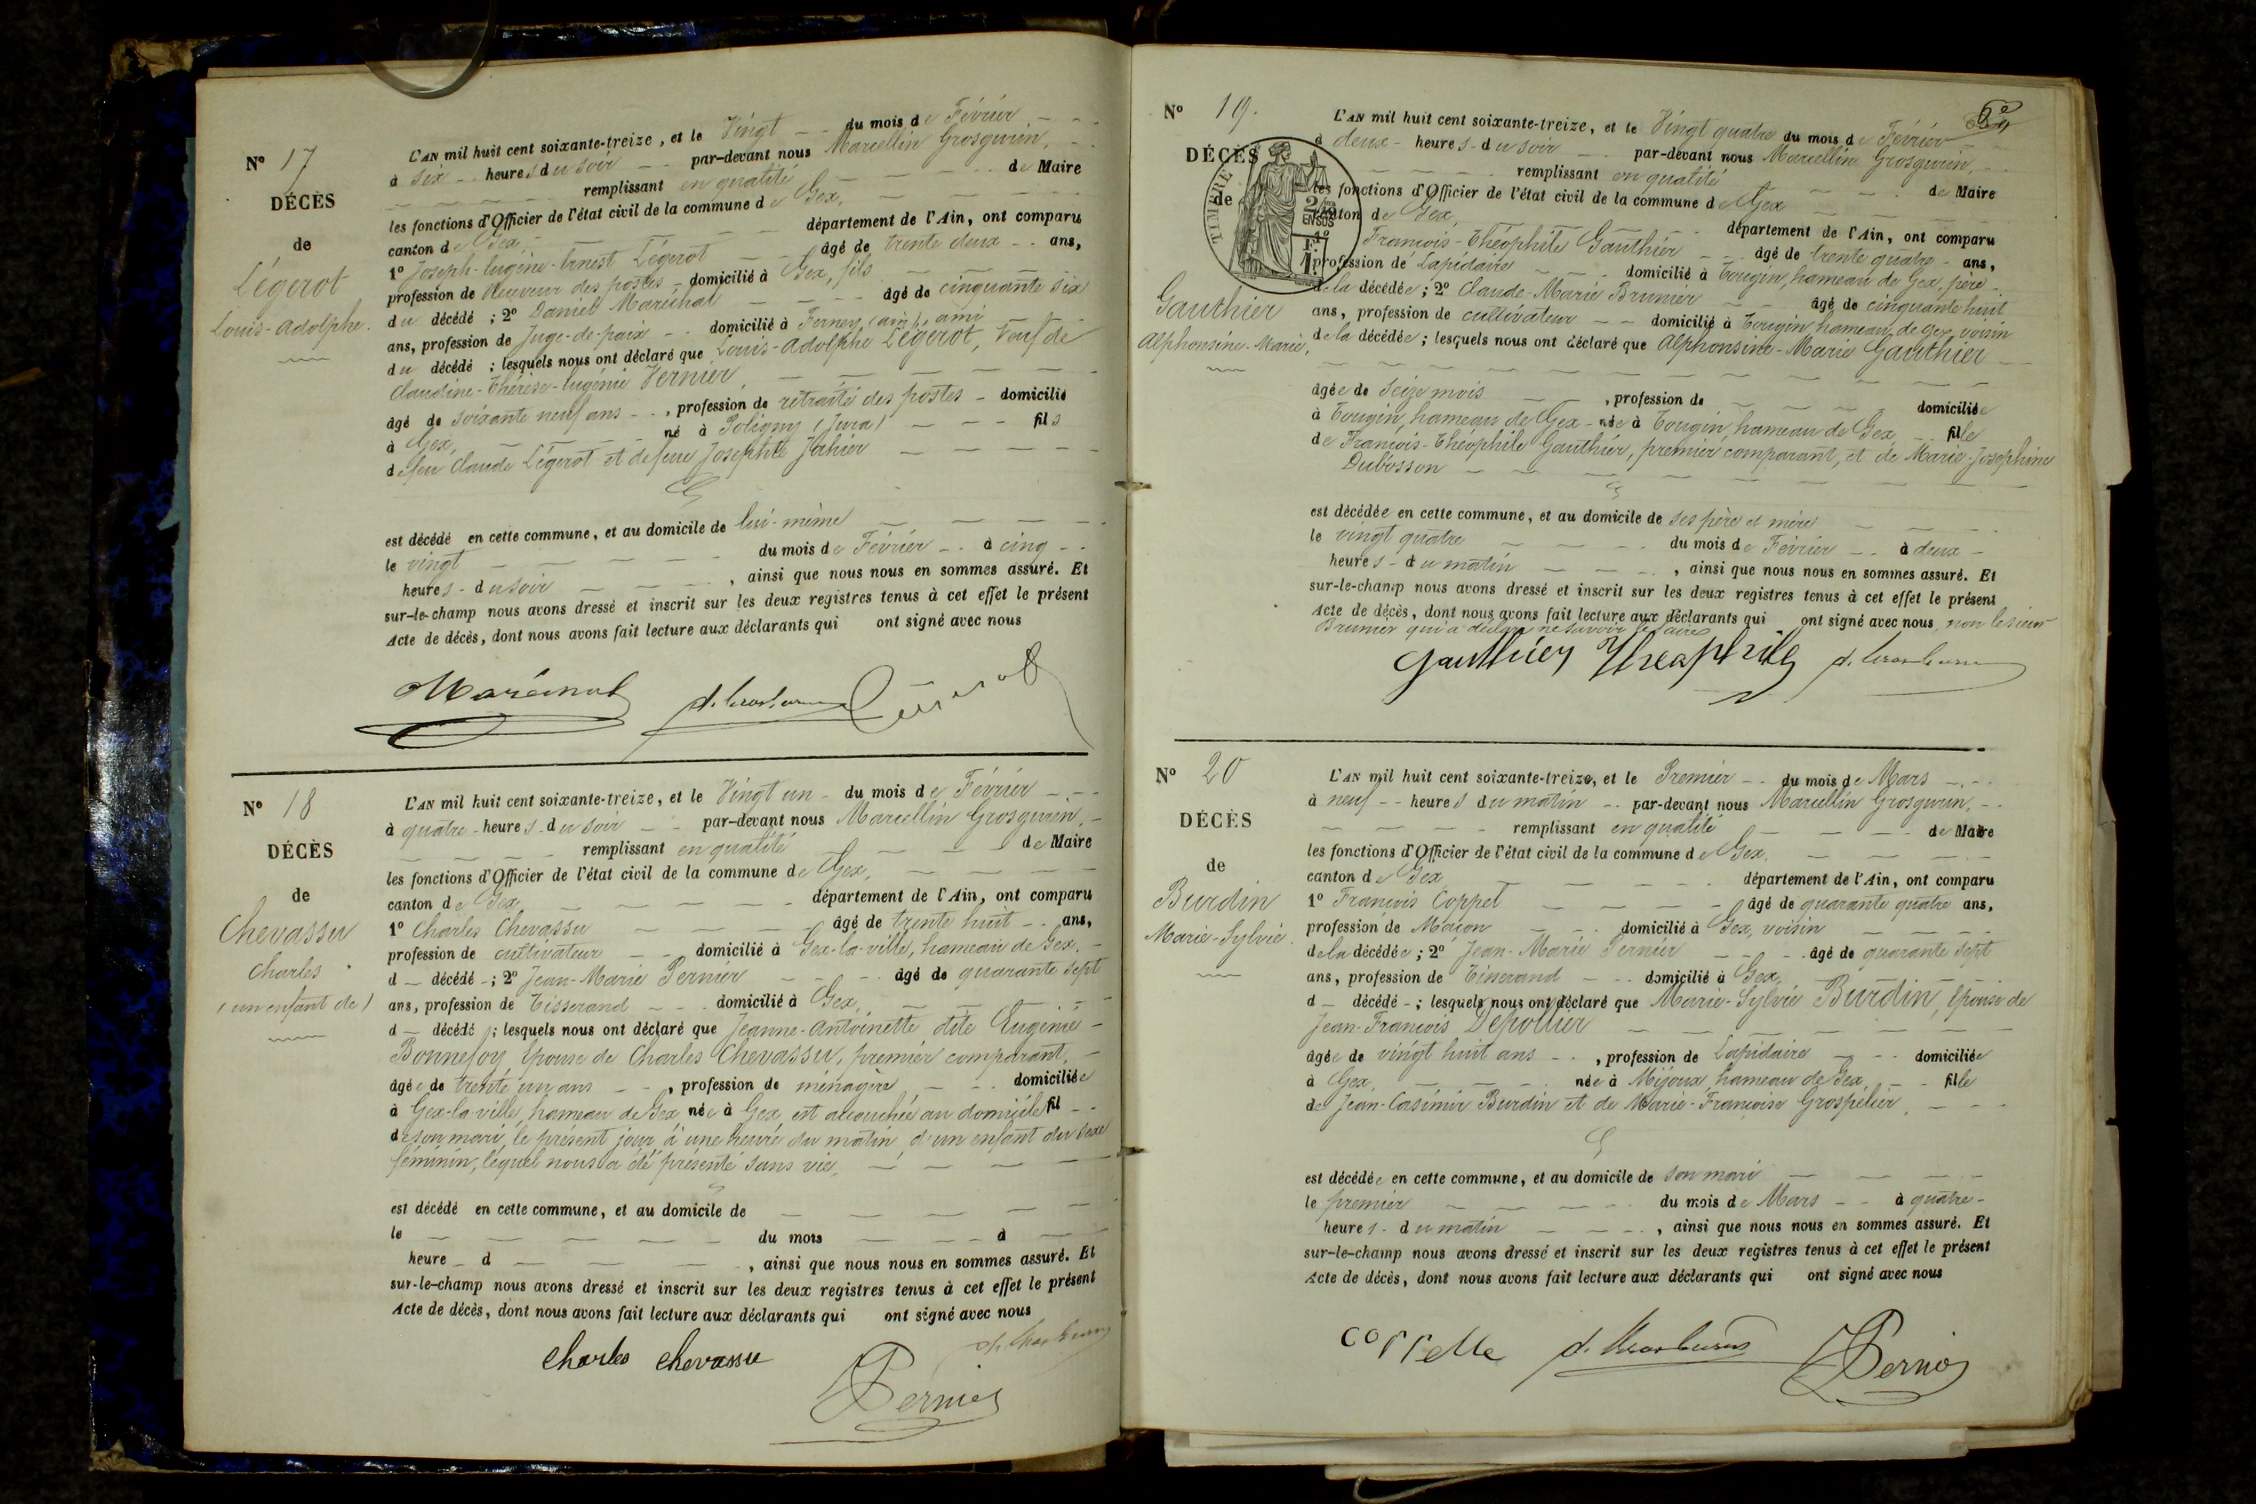 N° 17
DÉCÈS
de
Légerot
Louis-Adolphe.
L'AN mil huit cent soixante-treize, et le Vingt du mois de Février
à six heures du soir par-devant nous Marcellin Grosgurin,
remplissant en qualité de Maire
les fonctions d'Officier de l'état civil de la commune de Gex,
canton de Gex, département de l'Ain, ont comparu
1° Joseph-Eugène-Ernest Légerot âgé de trente deux ans,
profession de Receveur des postes domicilié à Gex, fils
du décédé ; 2° Daniel Maréchal âgé de cinquante six
ans, profession de Juge-de-paix domicilié à Ferney, (Ain), ami
du décédé ; lesquels nous ont déclaré que Louis-Adolphe Légerot, Veuf de
Claudine-Thérèse-Eugénie Vernier,
âgé de soixante neuf ans, profession de retraité des postes domicilié
à Gex, né à Poligny (Jura) fils
de feu Claude Légerot et de feue Josephte Jahier
est décédé en cette commune, et au domicile de lui-même
le vingt du mois de Février à cinq
heures du soir, ainsi que nous nous en sommes assuré. Et
sur-le-champ nous avons dressé et inscrit sur les deux registres tenus à cet effet le présent
Acte de décès, dont nous avons fait lecture aux déclarants qui ont signé avec nous
Maréchal
N° 18
DÉCÈS
de
Chevassu
Charles
(un enfant de)
L'AN mil huit cent soixante-treize, et le Vingt un du mois de Février
à quatre heures du soir par-devant nous Marcellin Grosgurin,
remplissant en qualité de Maire
les fonctions d'Officier de l'état civil de la commune de Gex,
canton de Gex, département de l'Ain, ont comparu
1° Charles Chevassu âgé de trente huit ans,
profession de cultivateur domicilié à Gex-la-ville, hameau de Gex,
d décédé ; 2° Jean-Marie Pernier âgé de quarante sept
ans, profession de Tisserand domicilié à Gex,
d décédé ; lesquels nous ont déclaré que Jeanne-Antoinette dite Eugénie
Bonnefoy Epouse de Charles Chevassu, premier comparant,
âgée de trente un ans, profession de ménagère domiciliée
à Gex-la-ville, hameau de Gex née à Gex, est accouchée au domicile fil
de son mari, le présent jour à une heure du matin, d'un enfant du sexe
féminin, lequel nous a été présenté sans vie,
est décédé en cette commune, et au domicile de
le du mois à
heure d , ainsi que nous nous en sommes assuré. Et
sur-le-champ nous avons dressé et inscrit sur les deux registres tenus à cet effet le présent
Acte de décès, dont nous avons fait lecture aux déclarants qui ont signé avec nous
Charles Chevassu
Pernier
N° 19.
DÉCÈS
de
TIMBRE
2/10 EN SUS
Gauthier
Alphonsine-Marie,
L'AN mil huit cent soixante-treize, et le Vingt quatre du mois de Février
à deux heures du soir par-devant nous Marcellin Grosgurin,
remplissant en qualité de Maire
les fonctions d'Officier de l'état civil de la commune de Gex
canton de Gex, département de l'Ain, ont comparu
1° François-Théophile Gauthier âgé de trente quatre ans,
profession de Lapidaire domicilié à Tougin, hameau de Gex, père
de la décédée ; 2° Claude-Marie Brunier âgé de cinquante huit
ans, profession de cultivateur domicilié à Tougin, hameau de Gex, voisin
de la décédée ; lesquels nous ont déclaré que Alphonsine-Marie Gauthier
âgée de seize mois, profession de domiciliée
à Tougin, hameau de Gex née à Tougin, hameau de Gex, fille
de François-Théophile Gauthier, premier comparant, et de Marie-Josephine
Dubosson
est décédée en cette commune, et au domicile de ses père et mère
le vingt quatre du mois de Février à deux
heures du matin, ainsi que nous nous en sommes assuré. Et
sur-le-champ nous avons dressé et inscrit sur les deux registres tenus à cet effet le présent
Acte de décès, dont nous avons fait lecture aux déclarants qui ont signé avec nous, non le sieur
Brunier qui a déclaré ne savoir le faire
Gauthier Théophile
N° 20
DÉCÈS
de
Burdin
Marie-Sylvie.
L'AN mil huit cent soixante-treize, et le Premier du mois de Mars
à neuf heures du matin par-devant nous Marcellin Grosgurin,
remplissant en qualité de Maire
les fonctions d'Officier de l'état civil de la commune de Gex,
canton de Gex département de l'Ain, ont comparu
1° François Coppel âgé de quarante quatre ans,
profession de Maçon domicilié à Gex, voisin
de la décédée ; 2° Jean-Marie Pernier âgé de quarante sept
ans, profession de Tisserand domicilié à Gex,
d décédé ; lesquels nous ont déclaré que Marie-Sylvie Burdin, Epouse de
Jean-François Depollier
âgée de vingt huit ans, profession de Lapidaire domiciliée
à Gex, née à Mijoux, hameau de Gex, fille
de Jean-Casimir Burdin et de Marie-Françoise Grospelier,
est décédée en cette commune, et au domicile de son mari
le premier du mois de Mars à quatre
heures du matin, ainsi que nous nous en sommes assuré. Et
sur-le-champ nous avons dressé et inscrit sur les deux registres tenus à cet effet le présent
Acte de décès, dont nous avons fait lecture aux déclarants qui ont signé avec nous
Pernier